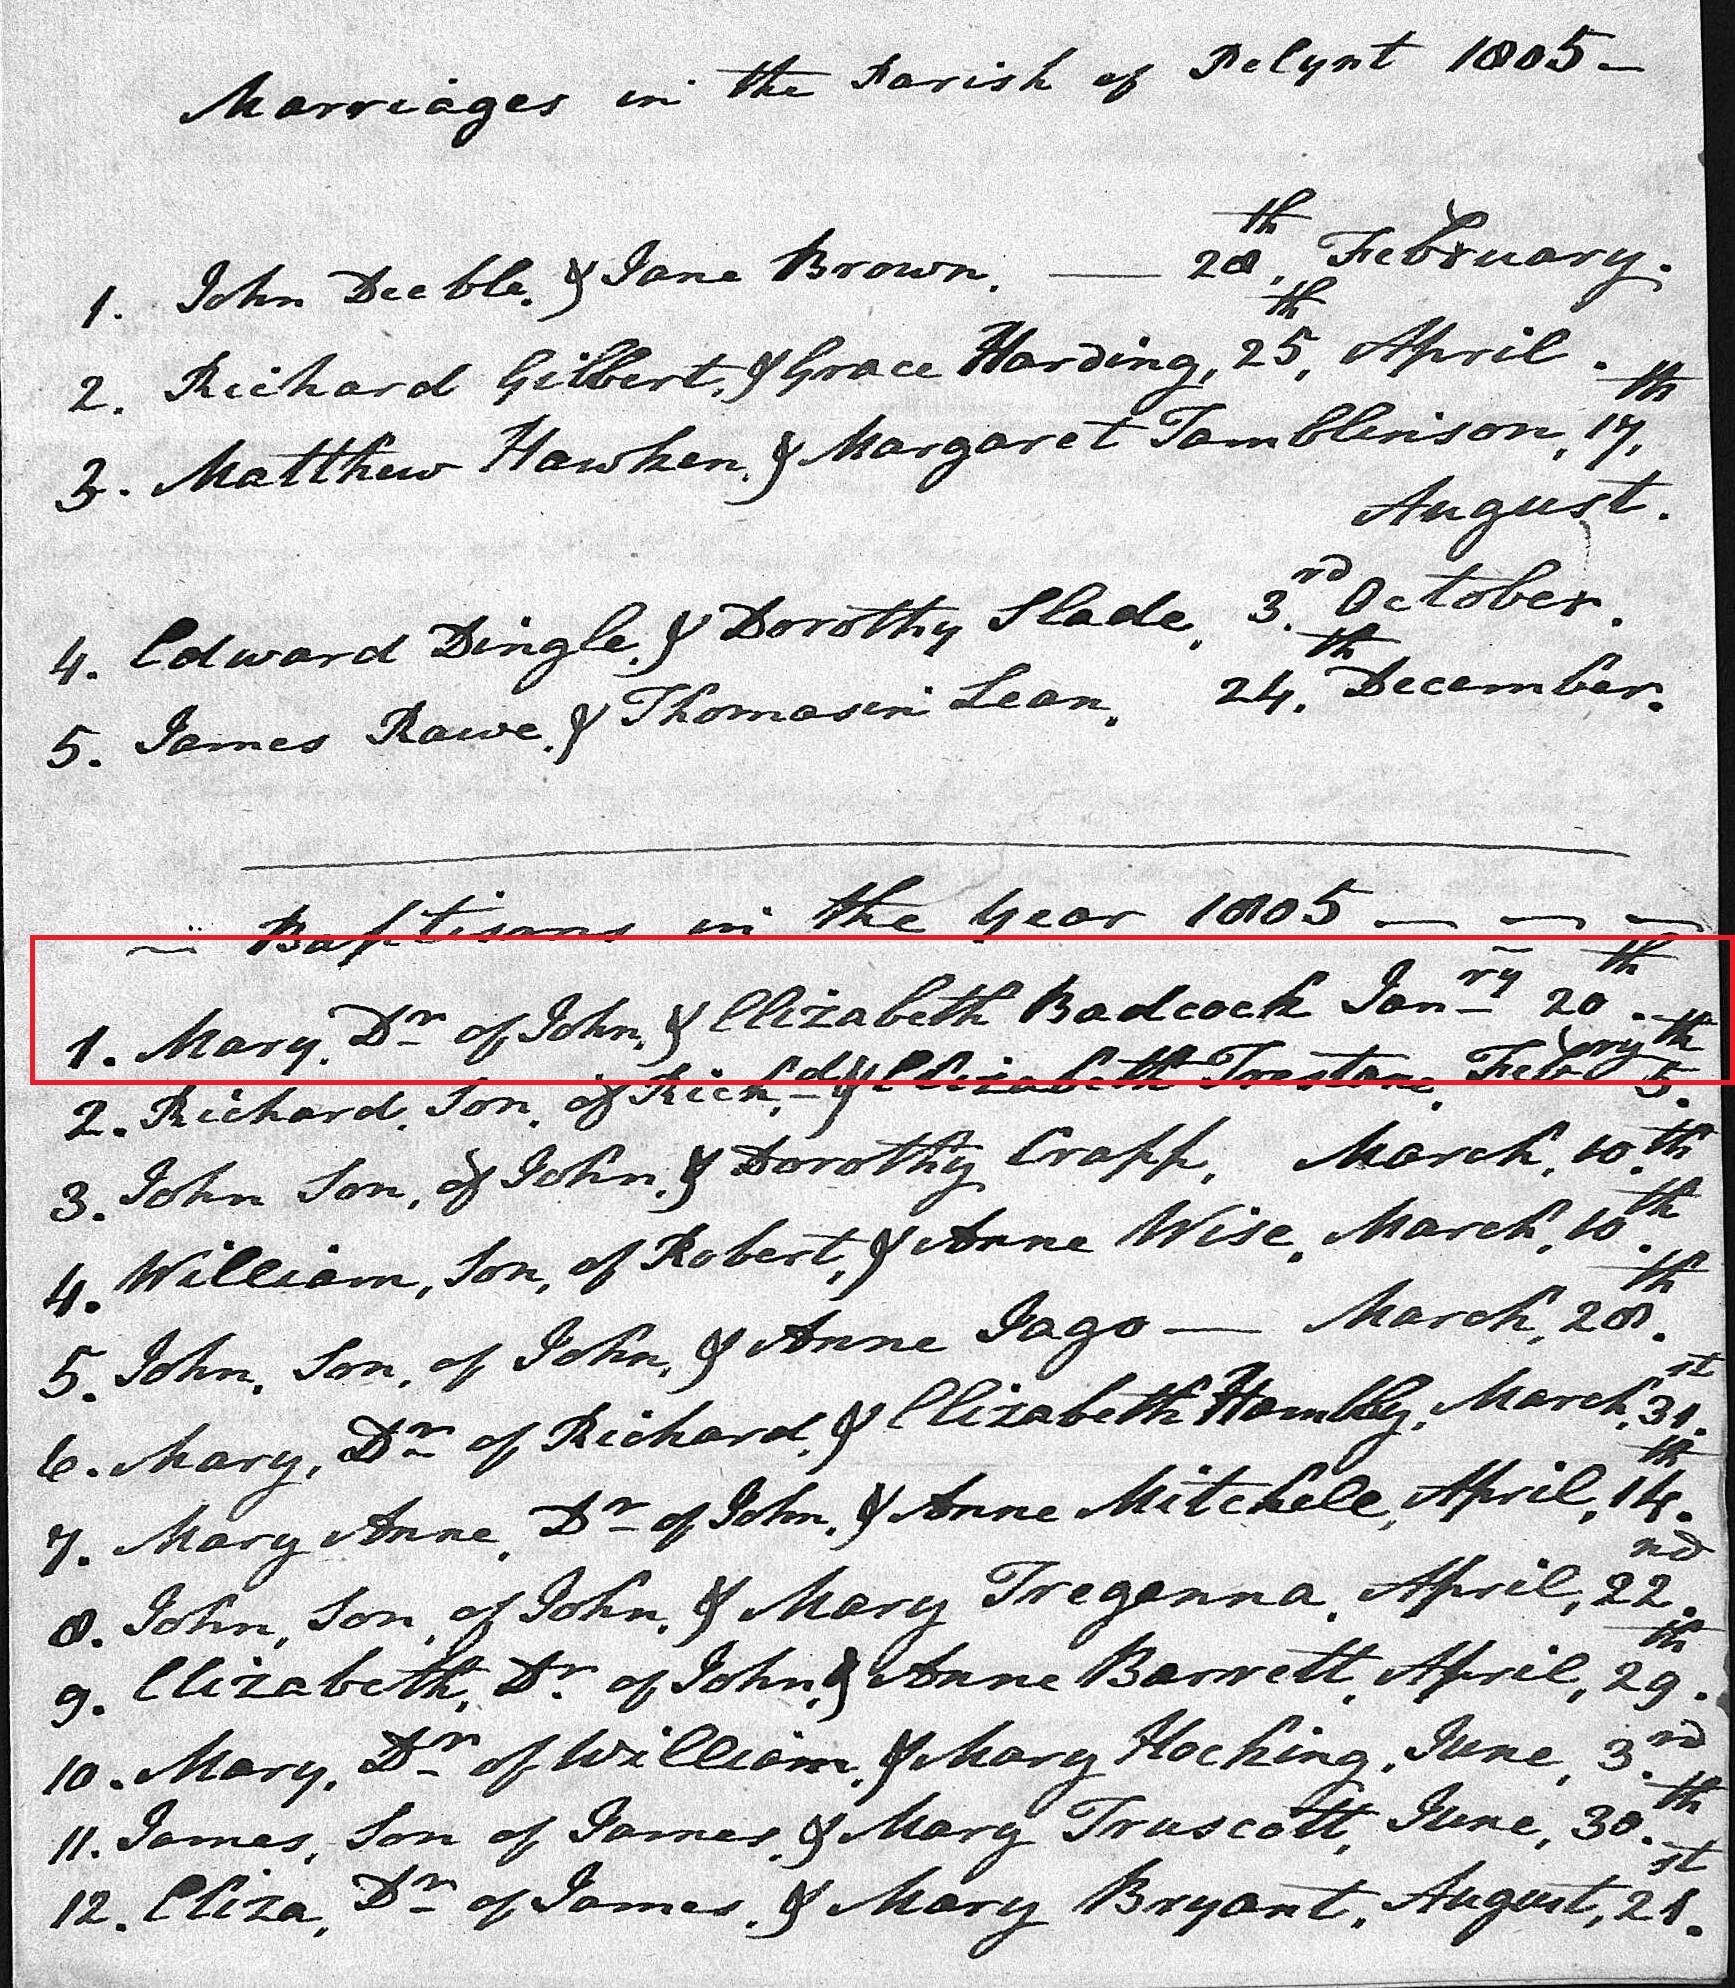 Marriages in the Parish of Pelynt 1805 —
1. John Deeble, & Jane Brown. — 28th, February.
2. Richard Gilbert, & Grace Harding, 25th, April.
3. Matthew Hawken, & Margaret Tamblinson, 17th,
August.
4. Edward Dingle, & Dorothy Slade, 3rd. October.
5. James Rawe, & Thomasin Lean, 24th, December.
Baptisms in the Year 1805 — — —
1. Mary, Dr of John, & Elizabeth Badcock Janry 20th.
2. Richard, Son, of Richd & Elizabeth Febry 5th.
3. John Son, of John, & Dorothy Crapp, March, 10th.
4. William, Son, of Robert, & Anne Wise, March, 10th.
5. John, Son, of John, & Anne Jago — March, 28th.
6. Mary, Dr of Richard, & Elizabeth Hambly, March, 31st.
7. Mary Anne, Dr of John, & Anne Mitchell, April, 14th.
8. John, Son, of John, & Mary Tregenna, April, 22nd.
9. Elizabeth, Dr. of John, & Anne Barrett, April, 29th.
10. Mary, Dr of William, & Mary Hocking, June, 3rd.
11. James, Son of James, & Mary Truscott, June, 30th.
12. Eliza, Dr of James, & Mary Bryant, August, 21st.